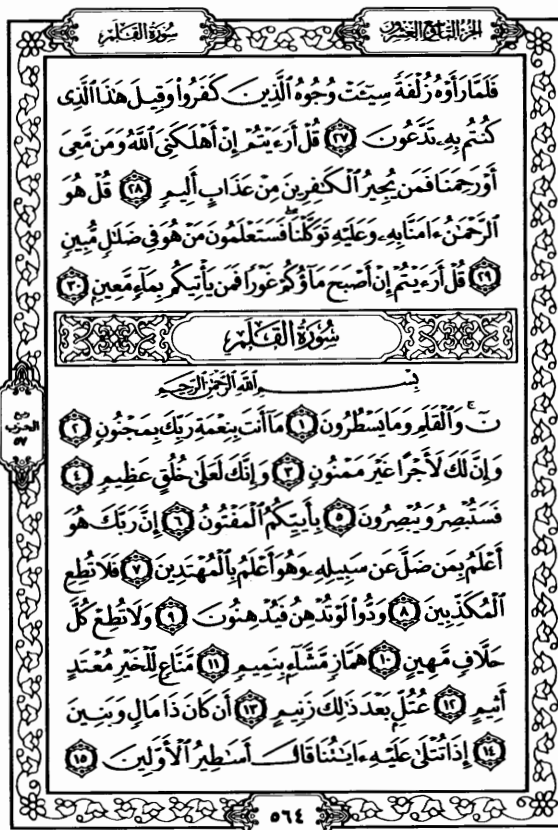 سُورَةُ القَلَمِ
الجُزْءُ التَّاسِعُ وَالعِشْرُونَ
فَلَمَّا رَأَوْهُ زُلْفَةً سِيٓـَٔتْ وُجُوهُ ٱلَّذِينَ كَفَرُوا۟ وَقِيلَ هَٰذَا ٱلَّذِى
كُنتُم بِهِۦ تَدَّعُونَ ٢٧ قُلْ أَرَءَيْتُمْ إِنْ أَهْلَكَنِىَ ٱللَّهُ وَمَن مَّعِىَ
أَوْ رَحِمَنَا فَمَن يُجِيرُ ٱلْكَٰفِرِينَ مِنْ عَذَابٍ أَلِيمٍ ٢٨ قُلْ هُوَ
ٱلرَّحْمَٰنُ ءَامَنَّا بِهِۦ وَعَلَيْهِ تَوَكَّلْنَا ۖ فَسَتَعْلَمُونَ مَنْ هُوَ فِى ضَلَٰلٍ مُّبِينٍ
٢٩ قُلْ أَرَءَيْتُمْ إِنْ أَصْبَحَ مَآؤُكُمْ غَوْرًا فَمَن يَأْتِيكُم بِمَآءٍ مَّعِينٍۭ ٣٠
سُورَةُ القَلَمِ
بِسْمِ ٱللَّهِ ٱلرَّحْمَٰنِ ٱلرَّحِيمِ
نٓ ۚ وَٱلْقَلَمِ وَمَا يَسْطُرُونَ ١ مَآ أَنتَ بِنِعْمَةِ رَبِّكَ بِمَجْنُونٍ ٢
وَإِنَّ لَكَ لَأَجْرًا غَيْرَ مَمْنُونٍ ٣ وَإِنَّكَ لَعَلَىٰ خُلُقٍ عَظِيمٍ ٤
فَسَتُبْصِرُ وَيُبْصِرُونَ ٥ بِأَييِّكُمُ ٱلْمَفْتُونُ ٦ إِنَّ رَبَّكَ هُوَ
أَعْلَمُ بِمَن ضَلَّ عَن سَبِيلِهِۦ وَهُوَ أَعْلَمُ بِٱلْمُهْتَدِينَ ٧ فَلَا تُطِعِ
ٱلْمُكَذِّبِينَ ٨ وَدُّوا۟ لَوْ تُدْهِنُ فَيُدْهِنُونَ ٩ وَلَا تُطِعْ كُلَّ
حَلَّافٍ مَّهِينٍ ١٠ هَمَّازٍ مَّشَّآءٍۭ بِنَمِيمٍ ١١ مَّنَّاعٍ لِّلْخَيْرِ مُعْتَدٍ
أَثِيمٍ ١٢ عُتُلٍّۭ بَعْدَ ذَٰلِكَ زَنِيمٍ ١٣ أَن كَانَ ذَا مَالٍ وَبَنِينَ
١٤ إِذَا تُتْلَىٰ عَلَيْهِ ءَايَٰتُنَا قَالَ أَسَٰطِيرُ ٱلْأَوَّلِينَ ١٥
ربع
الحزب
٥٧
٥٦٤